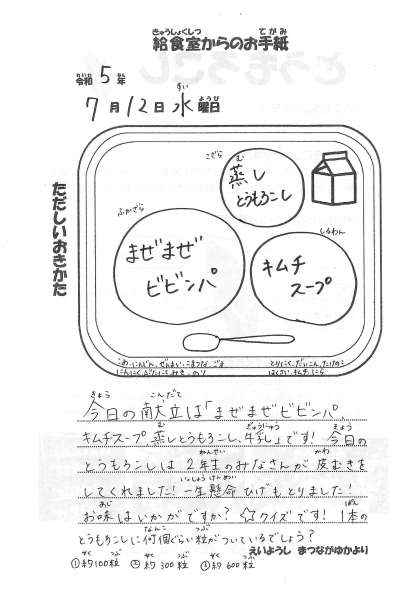 給食室からのお手紙
令和5年
7月12日 水曜日
ただしいおきかた
こざら
蒸し
とうもろこし
ふかざら
まぜまぜ
ビビンバ
しるわん
キムチ
スープ
こめ、にんじん、ぜんまい、こまつな、ごま
とりにく、だいこん、たけのこ
今日の献立は「まぜまぜビビンバ、
キムチスープ、蒸しとうもろこし、牛乳」です! 今日の
とうもろこしは 2年生のみなさんが 皮むきを
してくれました! 一生懸命 ひげもとりました!
お味はいかがですか? ☆クイズです! 1本の
とうもろこしに何個ぐらい粒がついているでしょう?
えいようし まつながゆかより
①約100粒 ②約300粒 ③約600粒